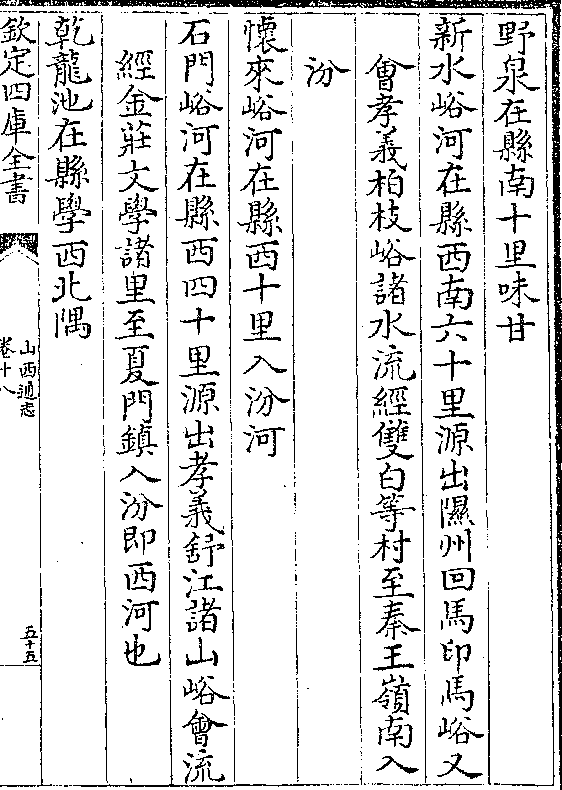 野泉在縣南十里味甘
新水峪河在縣西南六十里源出隰州回馬印馬峪又
會孝義柏枝峪諸水流經雙白等村至秦王嶺南入
汾
懷來峪河在縣西十里入汾河
石門峪河在縣西四十里源出孝義舒江諸山峪會流
經金莊文學諸里至夏門鎮入汾即西河也
乾龍池在縣學西北隅
欽定四庫全書
山西通志
卷十八
五十五